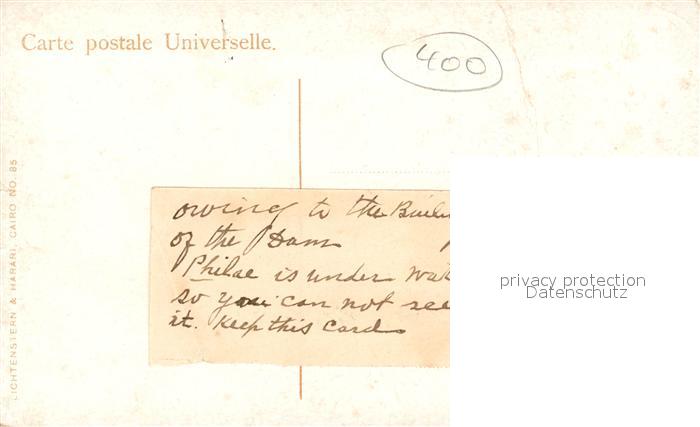 Carte postale Universelle.
400
LICHTENSTERN & HARARI, CAIRO NO. 85
owing to the
of the Dam
Philae is under
so you can not see
it. Keep this card
privacy protection
Datenschutz